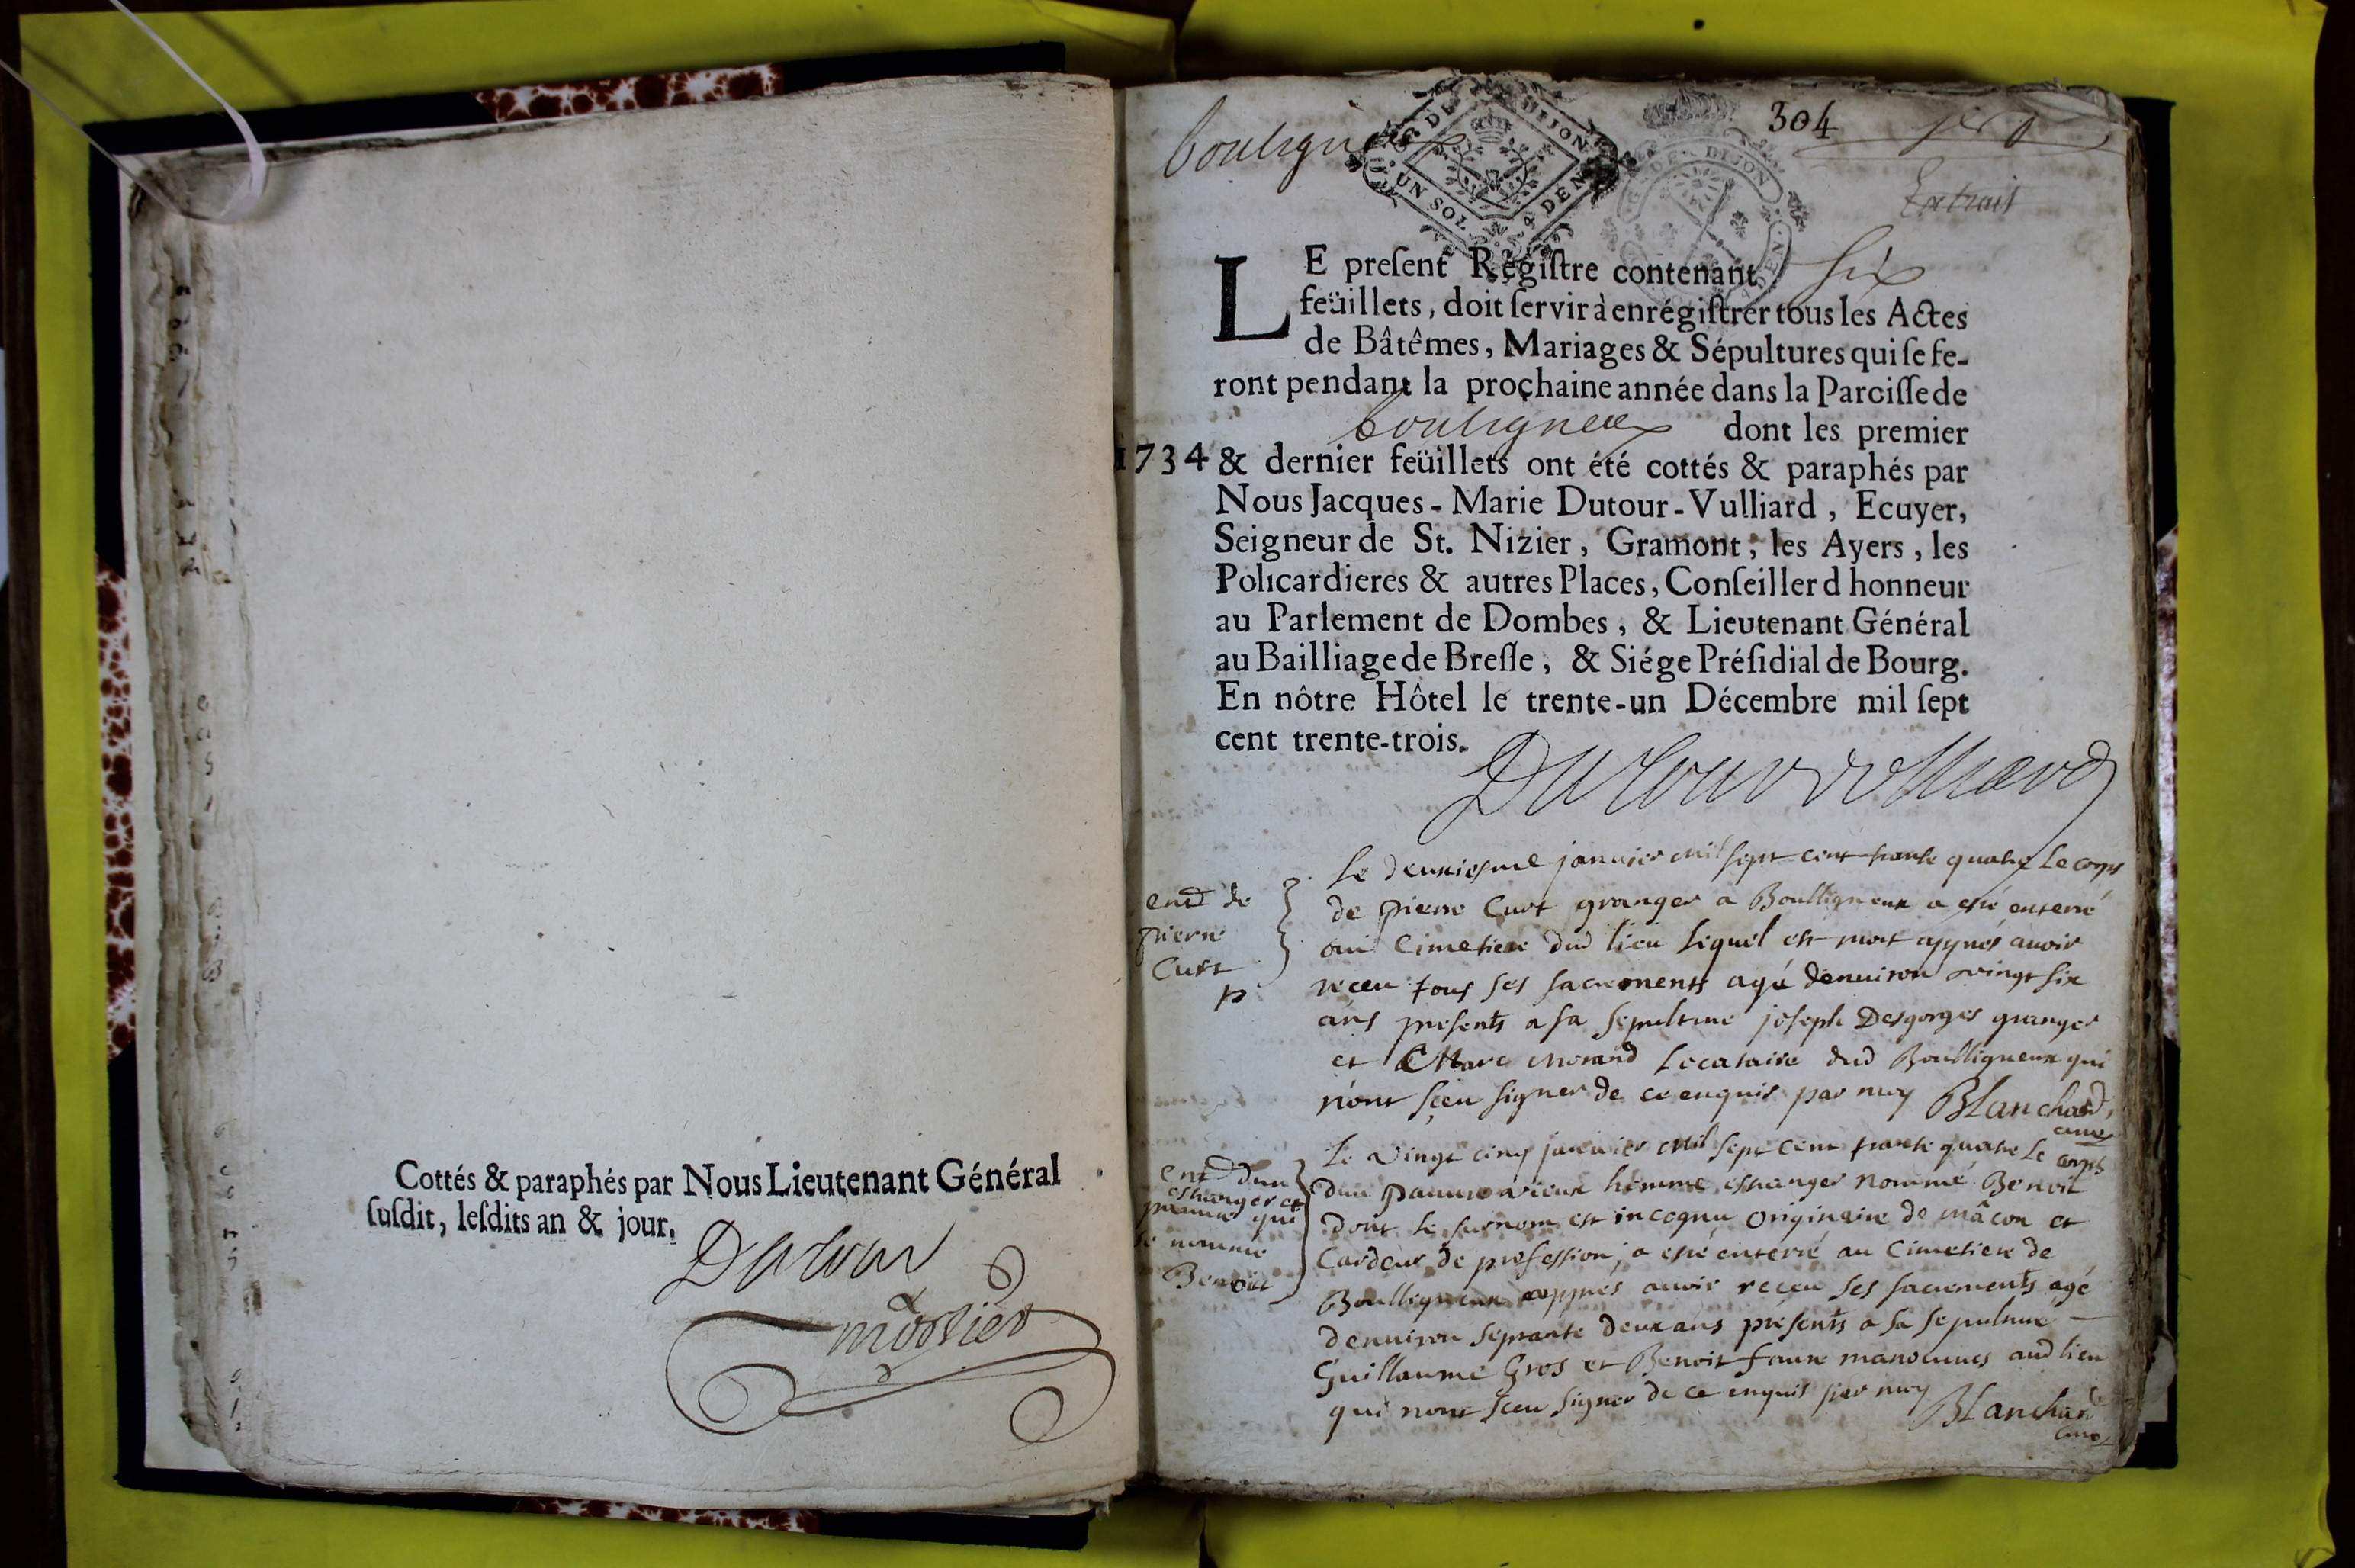 Cottés & paraphés par Nous Lieutenant Général
ſuſdit, leſdits an & jour.
Dutour
mortier
bouligneux
G. DE DIJON
UN SOL 4 DEN
G. DE DIJON
304
Extrait
LE preſent Regiſtre contenant six
feüillets, doit ſervir à enrégiſtrer tous les Actes
de Bâtêmes, Mariages & Sépultures qui ſe fe-
ront pendant la proçhaine année dans la Paroiſſe de
bouligneux dont les premier
1734 & dernier feüillets ont été cottés & paraphés par
Nous Jacques-Marie Dutour-Vulliard, Ecuyer,
Seigneur de St. Nizier, Gramont, les Ayers, les
Policardieres & autres Places, Conſeiller d honneur
au Parlement de Dombes, & Lieutenant Général
au Bailliage de Breſſe, & Siége Préſidial de Bourg.
En nôtre Hôtel le trente-un Décembre mil ſept
cent trente-trois.
Dutour vulliard
Le deuxiesme janvier mil sept cent trante quatre Le corps
de pierre Curt granger a Boulligneux a esté enterré
au Cimetiere dud lieu lequel est mort appres avoir
receu tous ses sacrements agé denuiron vingt six
ans presents a sa sepulture joseph Desgorges granger
et Marc morand Locataire dud Boulligneux qui
n'ont sçeu signer de ce enquis par moy Blanchard,
curé
ent de
pierre
Curt
p
Le vingt cinq janvier mil sept cent trante quatre Le corps
dun pauvre vieux homme estranger nommé Benoit
dont le surnom est incognu originaire de mâcon et
Cardeur de profession, a esté enterré au Cimetiere de
Boulligneux appres avoir receu ses sacrements agé
denuiron septante deux ans presents a sa sepulture
Guillaume Gros et Benoit faure manoeuvres aud lieu
qui n'ont sceu signer de ce enquis par moy
Blanchard
curé
ent dun
estranger et
pauvre qui
se nomme
Benoit